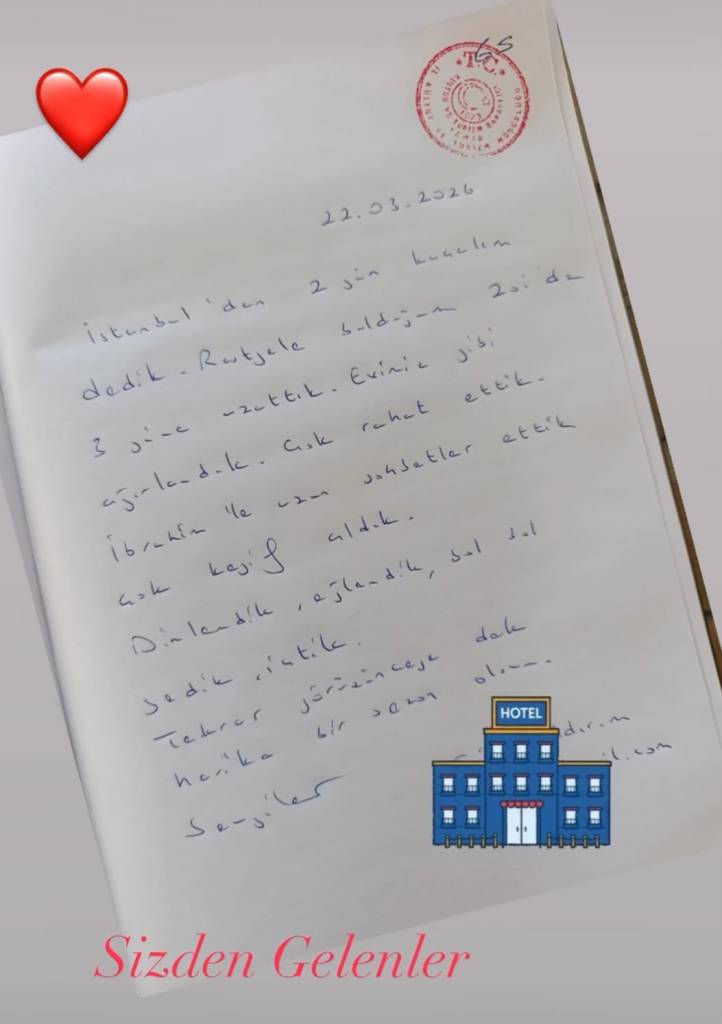 65
T.C.
22.03.2026
İstanbul'dan 2 gün kaçalım
dedik. Rastgele bulduğum Zoi'de
3 güne uzattık. Evimiz gibi
ağırlandık. Çok rahat ettik.
İbrahim ile uzun sohbetler ettik
çok keyif aldık.
Dinlendik, eğlendik, bol bol
yedik, içtik.
Tekrar görüşünceye dek
harika bir sezon olsun.
Sevgiler
HOTEL
Sizden Gelenler